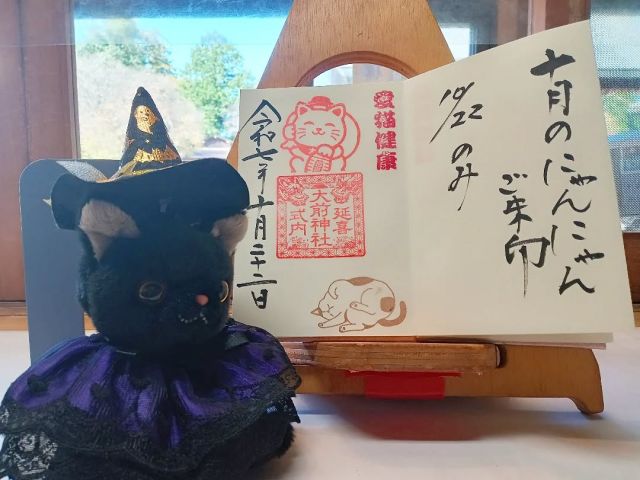 十月のにゃんにゃん
ご朱印
10/22 のみ
愛猫健康
延喜
大前神社
式内
令和七年十月二十二日